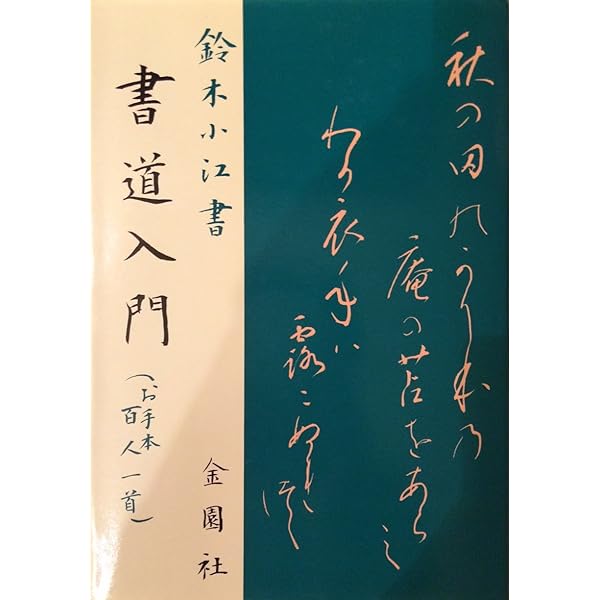 秋の田のかりほ乃
庵の苫をあらみ
わか衣手ハ
露ニぬれつゝ
鈴木小江書
書道入門
（お手本
百人一首）
金園社